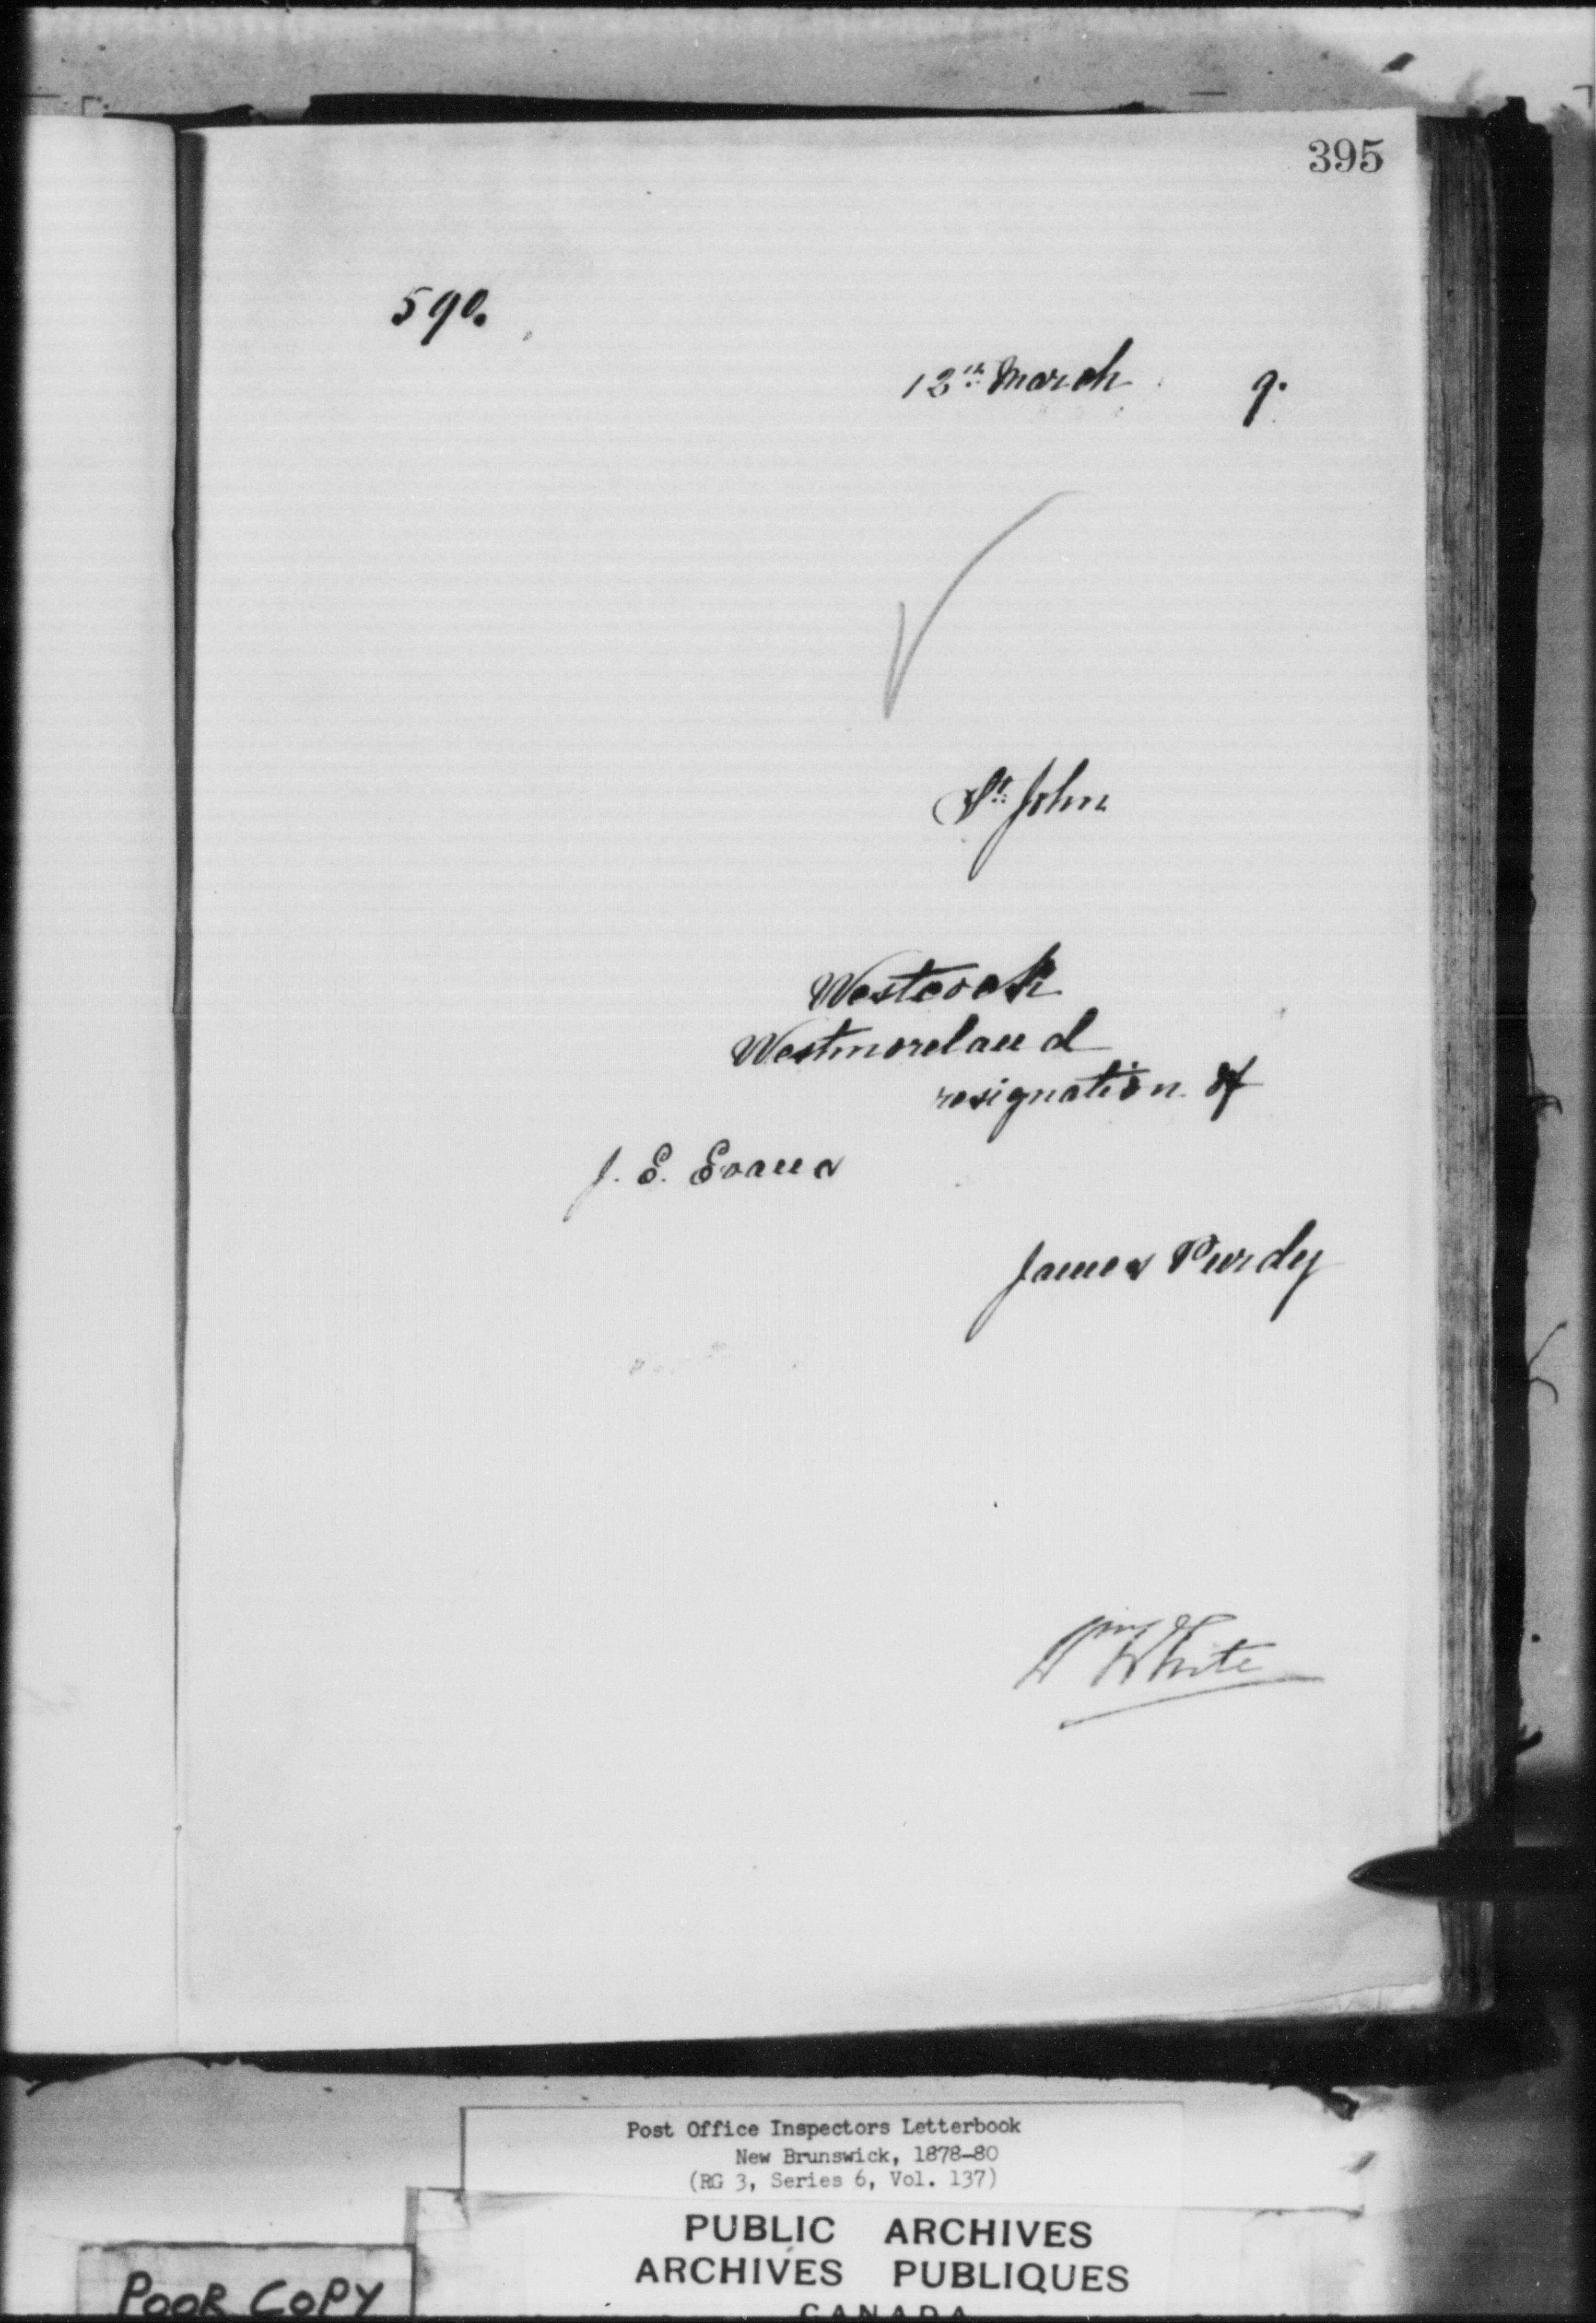 395
590.
12th March 9.
St. John
Westcock
Westmoreland
resignation of
J. E. Evans
James Purdy
Wm White
Post Office Inspectors Letterbook
New Brunswick, 1878-80
(RG 3, Series 6, Vol. 137)
PUBLIC ARCHIVES
ARCHIVES PUBLIQUES
CANADA
POOR COPY